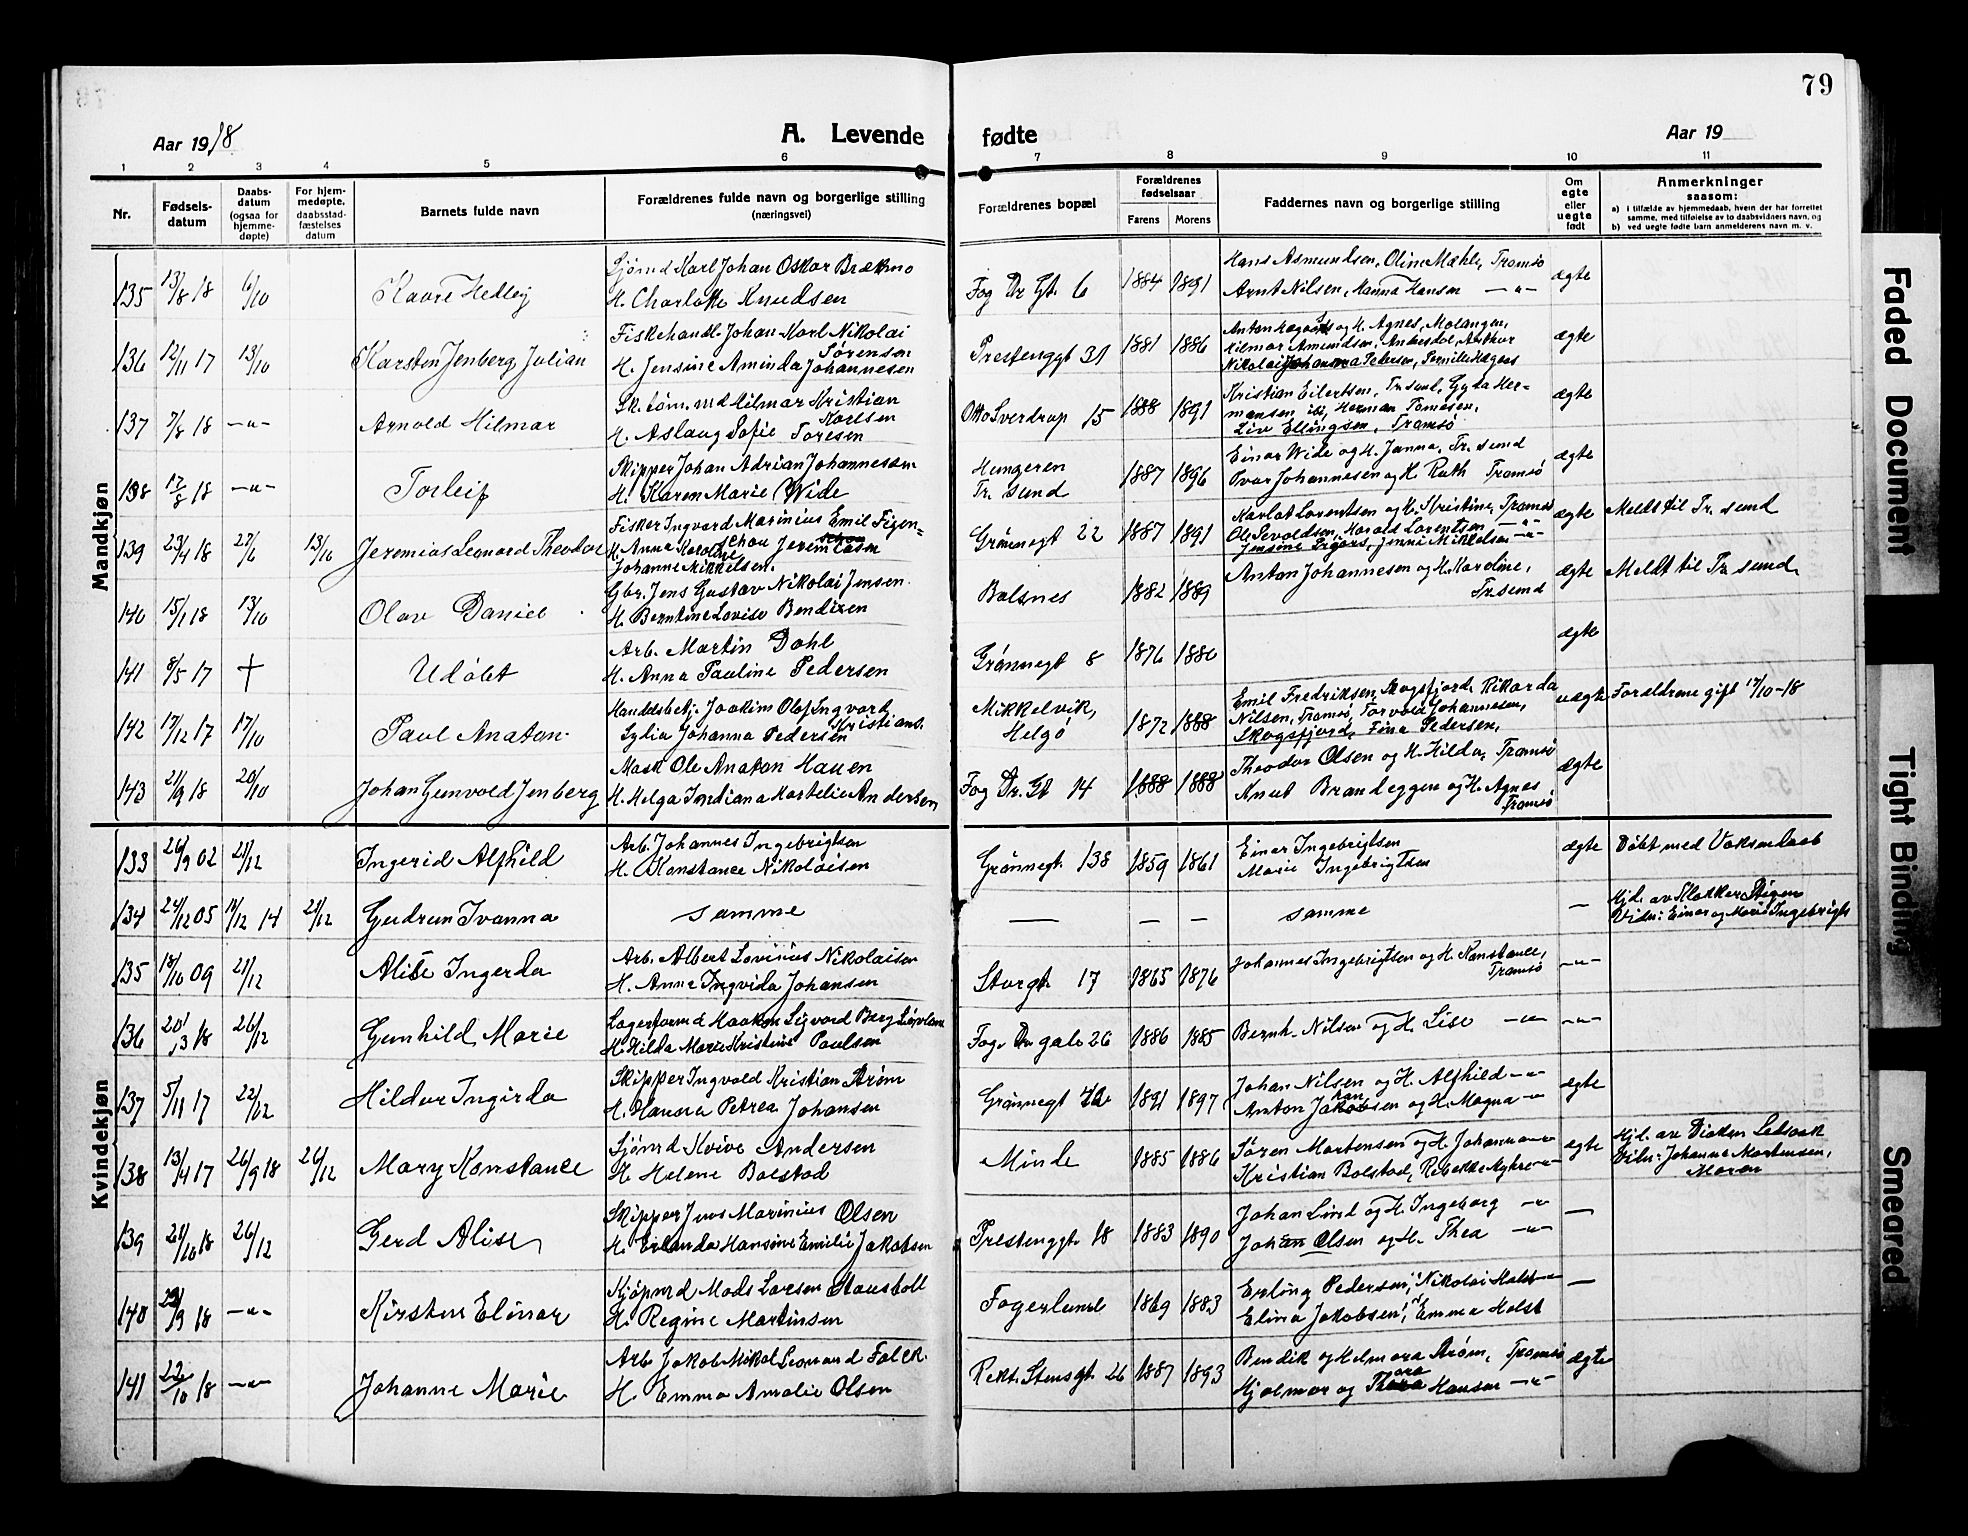 79
Aar 1918
A. Levende fødte
Aar 19
1 2 3 4 5 6 7 8 9 10 11
Nr.
Fødsels-
datum
Daabs-
datum
(ogsaa for
hjemme-
døpte)
For hjem-
medøpte,
daabsstad-
fæstelses
datum
Barnets fulde navn
Forældrenes fulde navn og borgerlige stilling
(næringsvei)
Forældrenes bopæl
Forældrenes
fødselsaar
Farens Morens
Faddernes navn og borgerlige stilling
Om
egte
eller
uegte
født
Anmerkninger
saasom:
a) i tilfælde av hjemmedaab, hvem der har forrettet
samme, med tilføielse av to daabsvidners navn, og
b) ved uegte fødte barn anmelderens navn m. v.
Mandkjøn
135 13/8 18 6/10 Kaare Hedley
Sjømd Karl Johan Oskar Brækmo
H. Charlotte Knudsen
Fog Dr. Gt. 6 1884 1891
Hans Asmundsen, Oline Mæhle, Tromsø
Arnt Nilsen, Hanna Hansen —"—
ægte
136 12/11 17 13/10 Karsten Jenberg Julian
Fiskehandl. Johan Karl Nikolai
Sørensen
H. Jensine Aminda Johannesen
Prestenggt 31 1881 1886
og H. Agnes, Malangen,
Hilmar Amundsen, Arthur
Nikolai Johanna Petersen, Pernille
ægte
137 7/8 18 —"— Arnold Hilmar
Sk. tøm. md Hilmar Kristian
Karlsen
H. Aslaug Sofie Toresen
Otto Sverdrup 15 1888 1891
Kristian Eilertsen, Tr.sund, Gyda Her-
mansen, Herman Tomesen,
Liv Ellingsen, Tromsø
ægte
138 17/8 18 —"— Torleif
Skipper Johan Adrian Johannesen
H. Karen Marie Wide
Hungeren
Tr. sund
1887 1896
Einar Wide og H. Janna, Tr. sund
Ovar Johannesen og H. Ruth Tromsø
ægte
139 23/4 18 27/6 13/10 Jeremias Leonard Theodor
Fisker Ingvard Marinius Emil Figen-
schou
H. Anna Karoline
Johanne Mikkelsen.
Grønnegt 22 1887 1891
Harlat Lorentsen og H. Kristine, Tromsø
Ole Sevaldsen, Harald Lorentsen —"—
Jensine Sigers, Jenni Mikkelsen —"—
ægte Meldt til Tr. sund
140 15/1 18 13/10 Olav Daniel
Gbr. Jens Gustav Nikolai Jensen.
H. Berntine Lovise Bendixen
Balsnes 1882 1889
Anton Johannesen og H. Karoline,
Tr.sund
ægte Meldt til Tr. sund
141 8/5 17 † Udøbt
Arb. Martin Dahl
H. Anna Pauline Pedersen
Grønnegt 8 1876 1880
ægte
142 17/12 17 17/10 Paul Anaton
Handelsbetj. Joakim Olaf Ingvard
Kristians.
Sylia Johanna Pedersen
Mikkelvik,
Helgø
1872 1888
Emil Fredriksen, Skogsfjord, Rikarda
Nilsen, Tromsø, Torvald Johannesen,
Skogsfjord, Fina Pedersen,
uægte Forældrene gift 17/10-18
143 21/9 18 20/10 Johan Gunvald Jenberg
Mask Ole Anaton Hauen
H. Helga Indiana Martelie Andersen
Fog Dr. Gt 14 1888 1888
Theodor Olsen og H. Hilda, Tromsø
Knut Brandeggen og H. Agnes
Tromsø
ægte
Kvindekjøn
133 26/9 02 21/12 Ingerid Alfhild
Arb. Johannes Ingebrigtsen
H. Konstance Nikolaisen
Grønnegt. 138 1859 1861
Einar Ingebrigtsen
Marie Ingebrigtsen
ægte Døbt med Voksendaab
134 24/12 05 14/12 14 21/12 Gudrun Ivanna
samme
— — — samme —
Hjd. av Klokker Stigen
Vidn: Einar og Marie Ingebrigts
135 18/10 09 21/12 Alise Ingerda
Arb. Albert Lovinius Nikolaisen
H. Anne Ingvida Johansen
Storgt. 17 1865 1876
Johannes Ingebrigtsen og H. Konstance,
Tromsø
—"—
136 20/3 18 26/12 Gunhild Marie
Lagerformd Haakon Sigvard Berg
H. Hilda Marie Kristine Paulsen
Fog. Dr. gate 26 1886 1885
Bernh. Nilsen og H. Lise —"— —"—
137 5/11 17 22/12 Hildur Ingirda
Skipper Ingvald Kristian Strøm
H. Hanna Petrea Johansen
Grønnegt 72 1891 1897
Johan Nilsen og H. Alfhild —"—
Anton Jakobsen og H. Magna —"—
ægte
138 13/4 17 26/9 18 26/12 Mary Konstance
Sjømd Kvive Andersen
H. Helene Bolstad
Minde 1885 1886
Søren Martensen og H. Johanna —"—
Kristian Bolstad, Rebekke —"—
ægte
Hjd. av Diakon
Vidn: Johanne Martensen,
Moren
139 21/10 18 26/12 Gerd Alise
Skipper Jens Marinius Olsen
H. Erlanda Hansine Emilie Jakobsen
Prestenggt. 18 1883 1890
Johan Lind og H. Ingeborg —"—
Johan Olsen og H. Thea —"—
—
140 23/9 18 —"— Kirsten Elinor
Kjøpmd Mads Larsen Stavstoll
H. Regine Martinsen
Fagerlund 1869 1883
Erling Pedersen, Nikolai Holst —"—
Elina Jakobsen, Emma Holst
—
141 22/10 18 —"— Johanne Marie
Arb. Jakob Mikal Leonard Falck.
H. Emma Amalie Olsen
Rekt. Stensgt 26 1887 1893
Bendik og Helmora Strøm, Tromsø
Hjalmar og Thora Hansen —"—
ægte
Faded Document
Tight Binding
Smeared